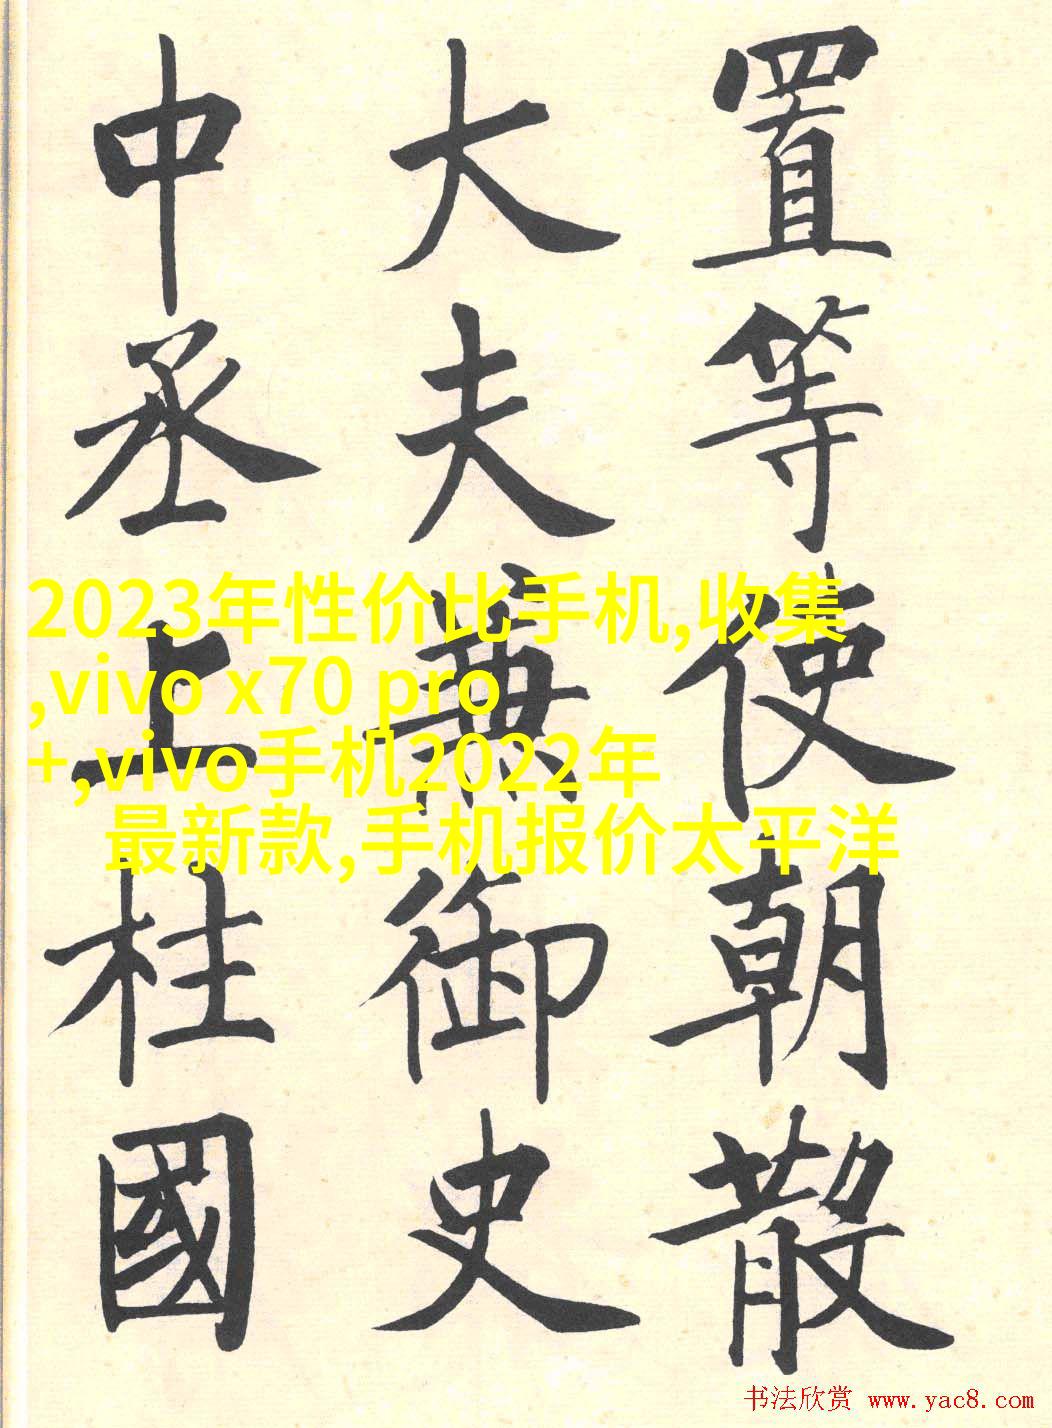 置等使朝散
大夫兼御史
中丞上柱國
2023年性价比手机,收集
,vivo x70 pro
+,vivo手机2022年
最新款,手机报价太平洋
书法欣赏 www.yac8.com